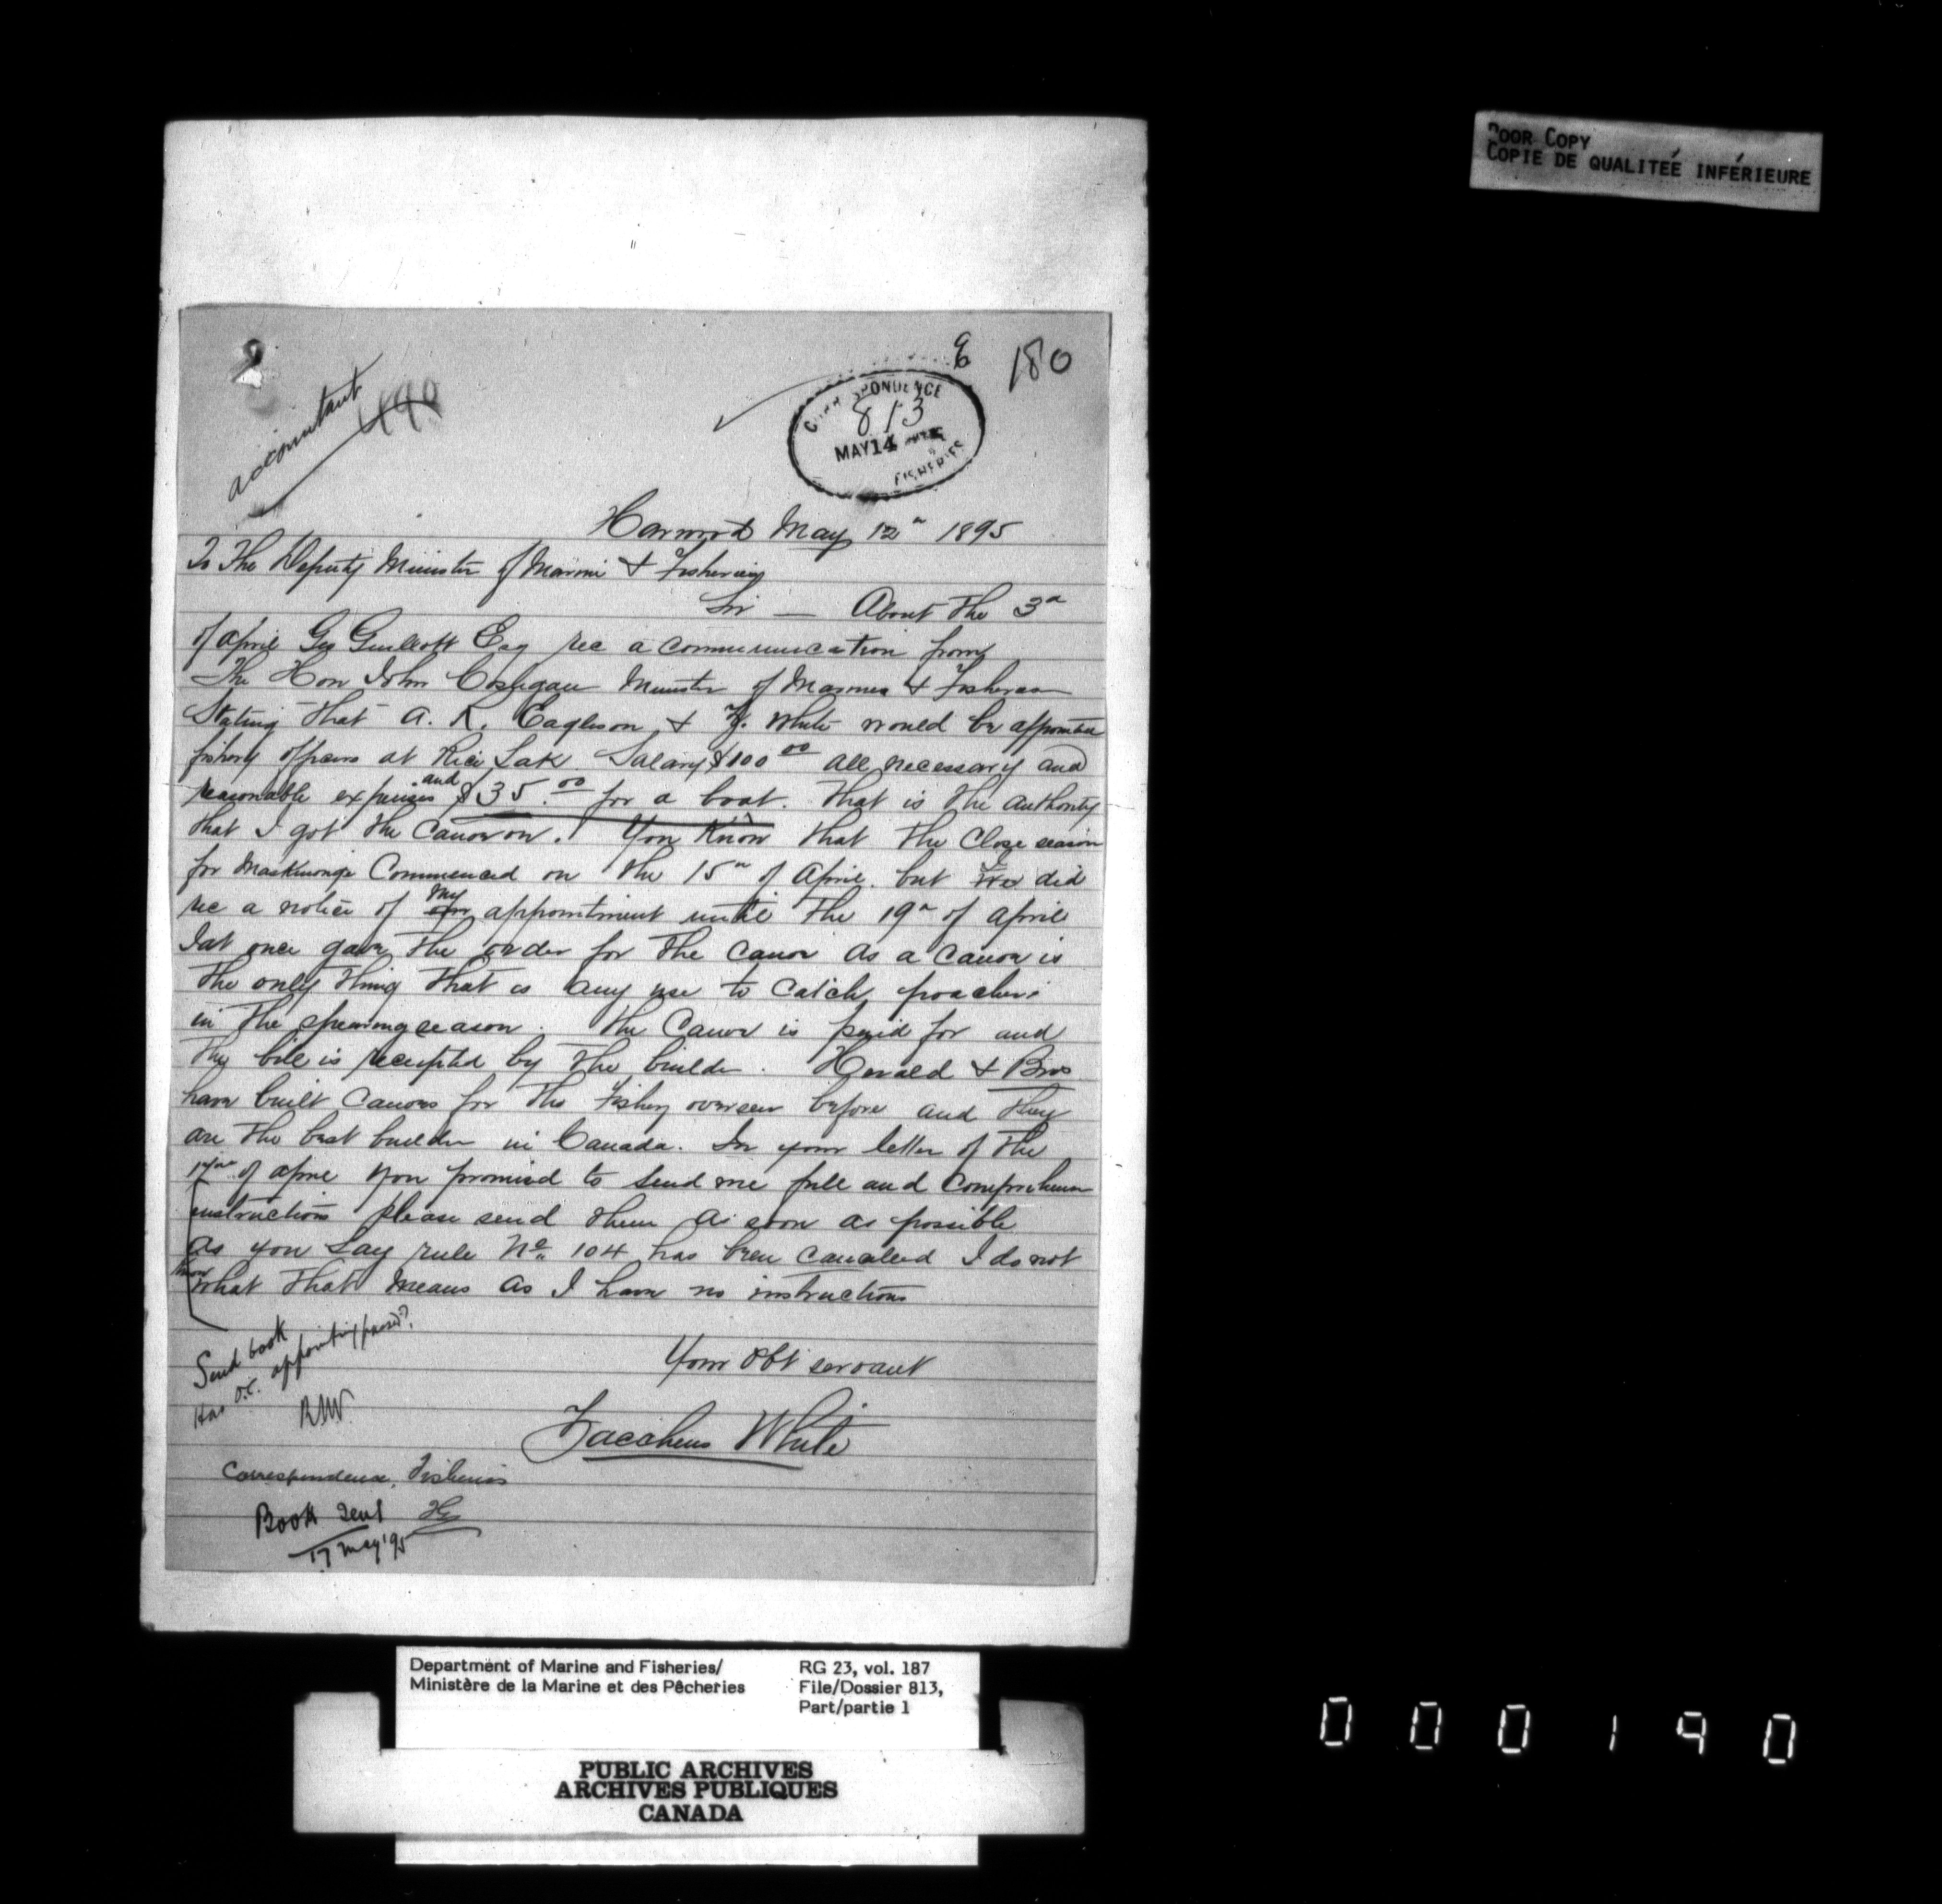 POOR COPY
COPIE DE QUALITEÉ INFÉRIEURE
180
accountant
CORRESPONDENCE
813
MAY 14
FISHERIES
Harwood May 12th 1895
To The Deputy Minister of Marine & Fisheries
Sir — About the 3rd
of april Geo Guillott Esq rec a communication from
The Hon John Costigan Minister of Marine & Fisheries
Stating that A. R. Eagleson & Z. White would be appointed
fishery officers at Rice Lake Salary $100 00 all necessary and
reasonable expenses and $35.00 for a boat. That is the authority
that I got the Canoe on. You Know that the Close season
for Maskinonge Commenced on the 15th of April. but I did
rec a notice of my appointment untill the 19th of april
I at once gave the order for the canoe as a canoe is
the only thing that is any use to catch poachers
in the spearing season. The Canoe is paid for and
the bill is receipted by the builder. Herald & Bros
have built Canoes for the Fishery overseer before and they
are the best builder in Canada. In your letter of the
of april you promised to send me full and comprehensive
instructions please send them as soon as possible
As you say rule No. 104 has been canceled I do not
know what that means as I have no instructions
Your Obt servant
Zaccheus White
Send book
Has O.C. appointing passed?
Correspondence, Fisheries
Book sent
17 May '95
Department of Marine and Fisheries/
Ministère de la Marine et des Pêcheries
RG 23, vol. 187
File/Dossier 813,
Part/partie 1
PUBLIC ARCHIVES
ARCHIVES PUBLIQUES
CANADA
000190